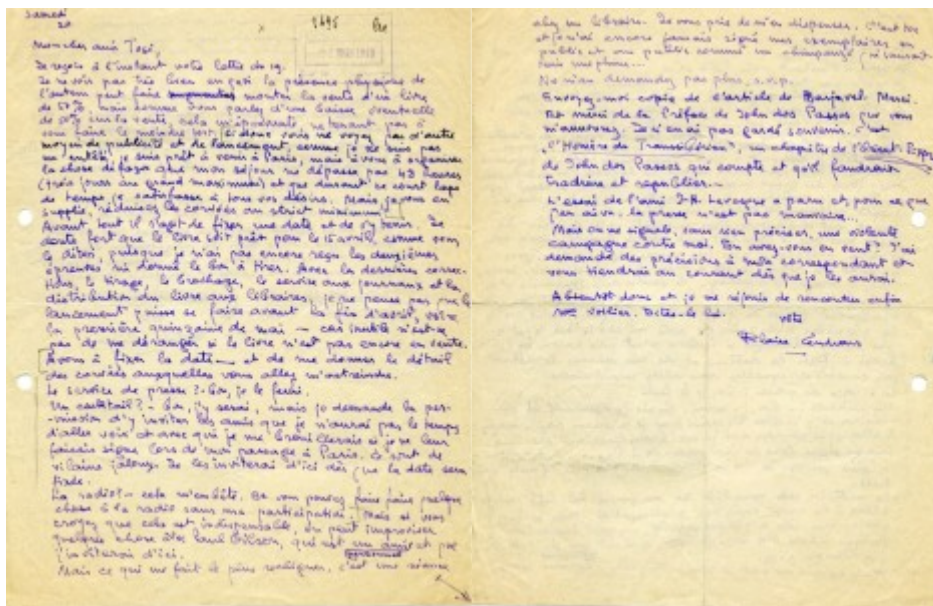 Samedi
20
Mon cher ami Tosi,
Je reçois à l'instant votre lettre du 19.
Je ne vois pas très bien en quoi la présence physique de
l'auteur peut faire augmenter monter la vente d'un livre
de 50%, mais comme vous parlez d'une baisse éventuelle
de 50% sur la vente, cela m'épouvante, ne tenant pas à
vous faire le moindre tort. Si donc vous ne voyez pas d'autre
moyen de publicité et de lancement, comme je ne suis pas
un entêté, je suis prêt à venir à Paris, mais à vous d'organiser
la chose de façon que mon séjour ne dépasse pas 48 heures
(trois jours au grand maximum) et que durant ce court laps
de temps je satisfasse à tous vos désirs. Mais, je vous en
supplie, réduisez les corvées au strict minimum.
Avant tout il s'agit de fixer une date et de s'y tenir. Je
doute fort que le livre soit prêt pour le 15 avril, comme vous
le dites, puisque je n'ai pas encore reçu les deuxièmes
épreuves ni donné le bon à tirer. Avec les dernières correc-
tions, le tirage, le brochage, le service aux journaux et la
distribution du livre aux libraires, je ne pense pas que le
lancement puisse se faire avant la fin d'avril, voire
la première quinzaine de mai — car inutile n'est-ce
pas de me déranger si le livre n'est pas encore en vente.
Avons à fixer la date — et de me donner le détail
des corvées auxquelles vous allez m'astreindre.
Le service de presse? - Bon, je le ferai.
Un cocktail? - Bon, j'y serai, mais je demande la per-
-mission d'y inviter les amis que je n'aurai pas le temps
d'aller voir et avec qui je me brouillerais si je ne leur
faisais signe lors de mon passage à Paris. Ce sont de
vilains jaloux. Je les inviterai d'ici dès que la date sera
fixée.
La radio? - cela m'embête. Si vous pouvez faire faire quelque
chose à la radio sans ma participation. Mais si vous
croyez que cela est indispensable, on peut improviser
quelque chose avec Paul Gilson, qui est un ami et que
j'inviterai d'ici.
Mais ce qui me fait le plus rechigner, c'est une séance
chez un libraire. Je vous prie de m'en dispenser. C'est
et je n'ai encore jamais signé mes exemplaires en
public et en public comme un chimpanzé qui saurait
tenir une plume...
Ne m'en demandez pas plus, s.v.p.
Envoyez-moi copie de l'article de Barjavel. Merci.
Et merci de la Préface de John dos Passos que vous
m'annoncez. Je n'en ai pas gardé souvenir. C'est
"l'Homère du Transsibérien", un chapitre de l'Orient Express
de John dos Passos qui compte et qu'il faudrait
traduire et republier.—
L'essai de l'ami J.H. Levesque a paru et, pour ce que
j'en ai vu, la presse n'est pas mauvaise...
Mais on me signale, sans rien préciser, une violente
campagne contre moi. En avez-vous eu vent? J'ai
demandé des précisions à mon correspondant et
vous tiendrai au courant dès que je les aurai.
A bientôt donc et je me réjouis de rencontrer enfin
Mr. Vollier. Dites-le lui.
Vôtre
Blaise Cendrars